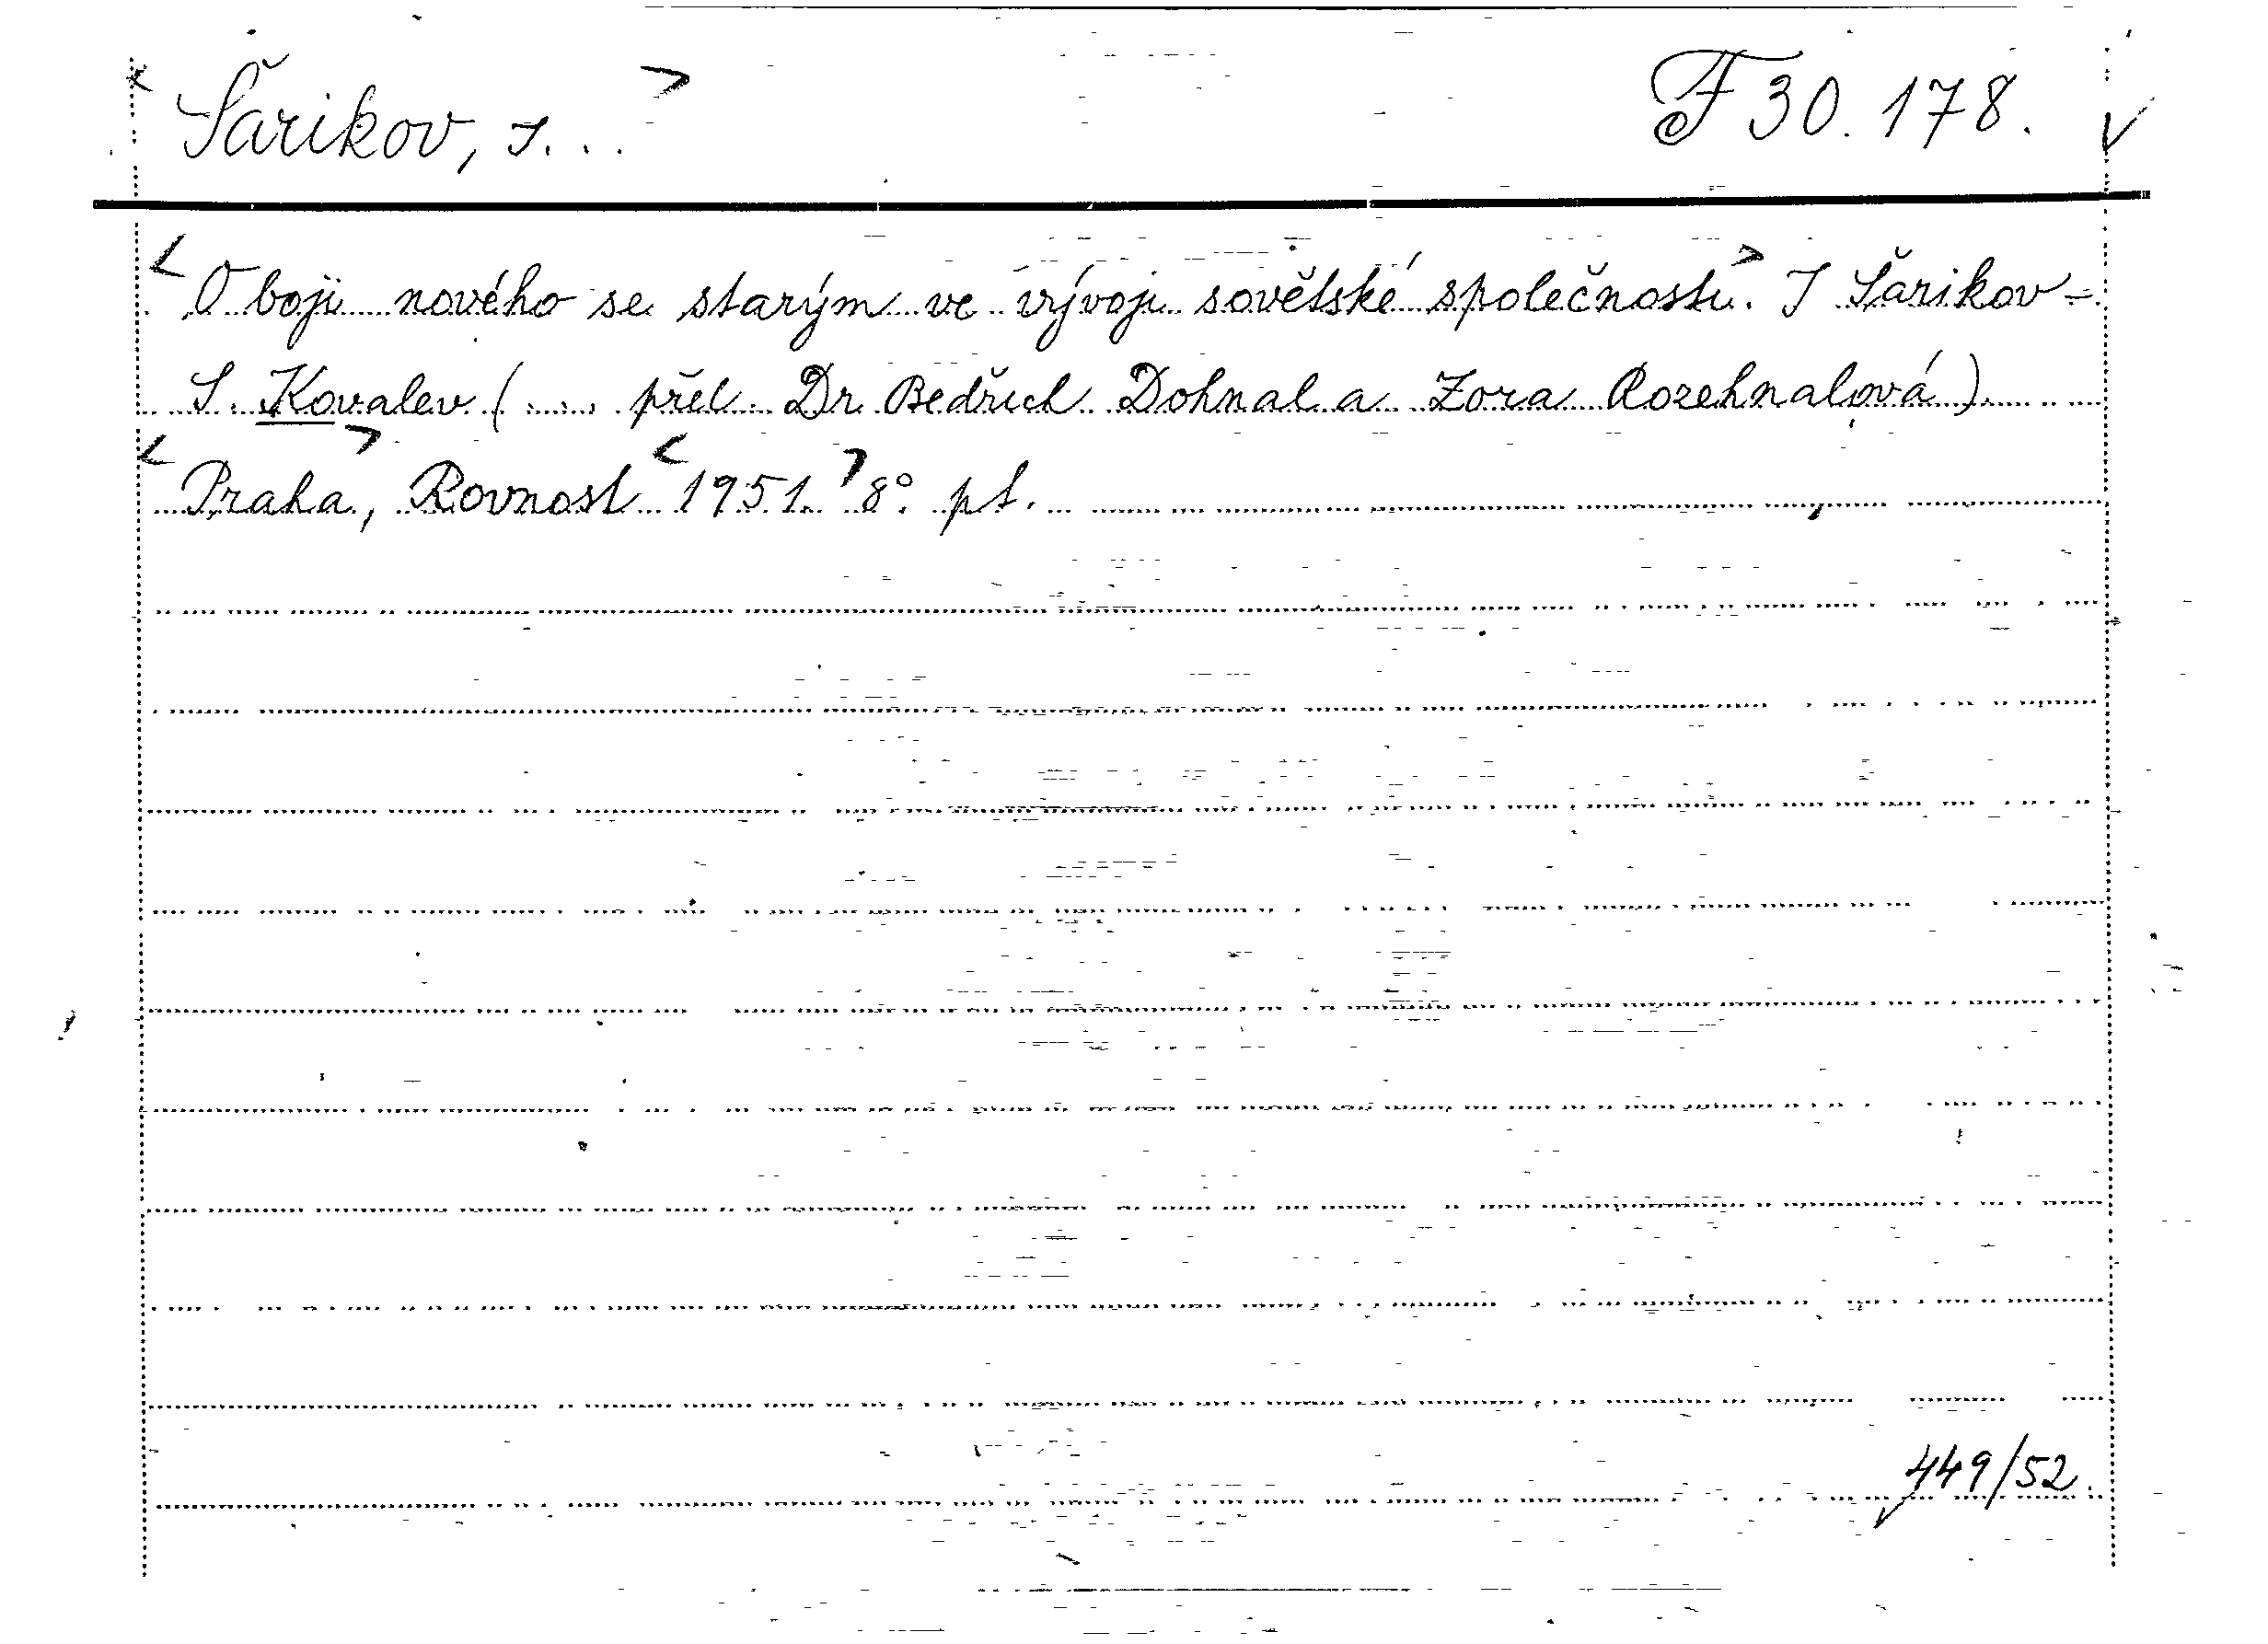 < Šarikov, I... > F 30.178. √
< O boji nového se starým ve vývoji sovětské společnosti. > I Šarikov -
S. Kovalev ( ... přel. Dr. Bedřich Dohnal a Zora Rozehnalová)
< Praha, > Rovnost < 1951. > 8°. pt.
449/52.